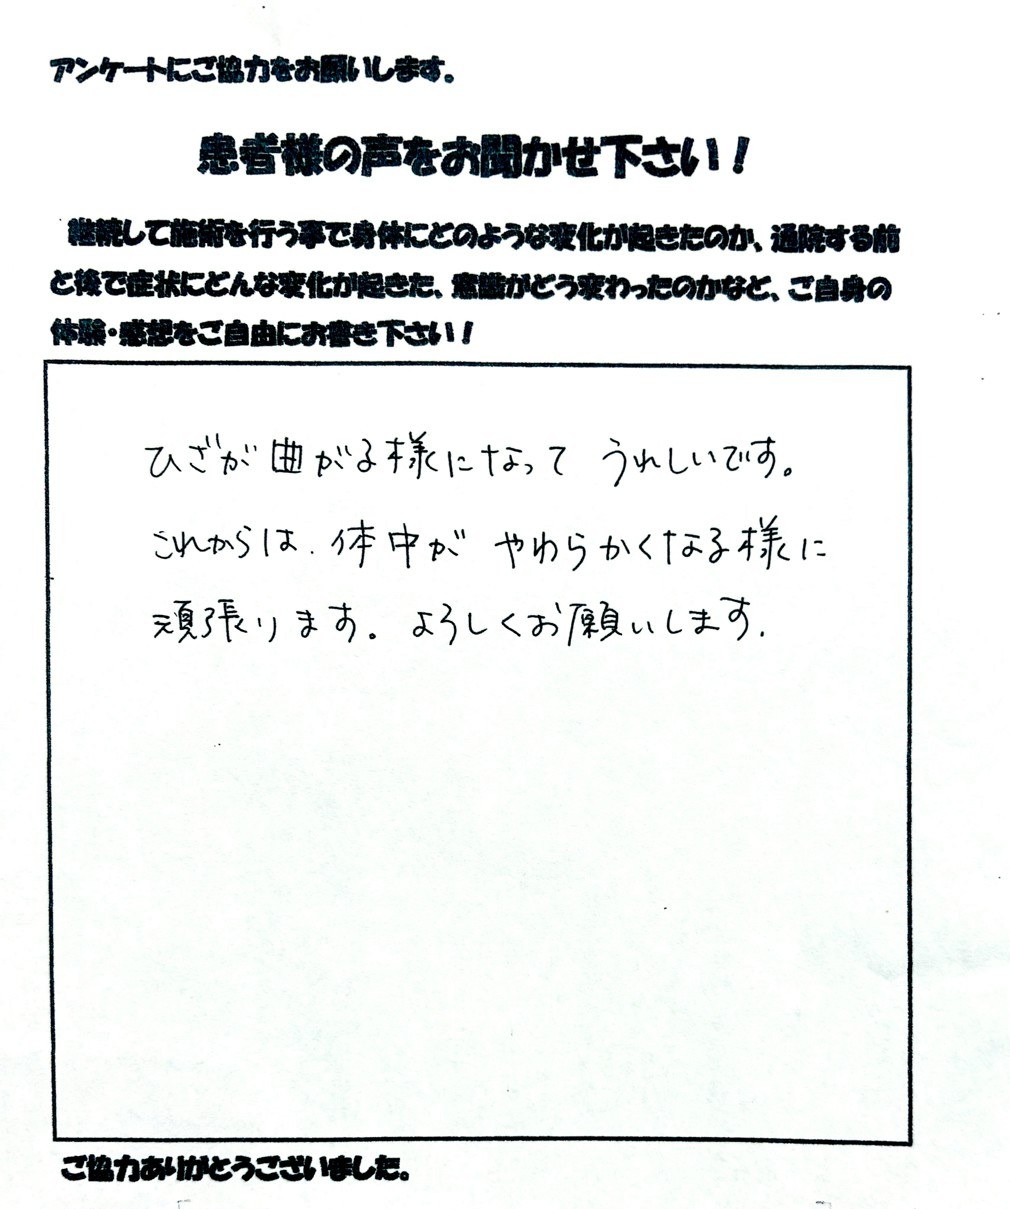 アンケートにご協力をお願いします。
患者様の声をお聞かせ下さい！
継続して施術を行う事で身体にどのような変化が起きたのか、通院する前
と後で症状にどんな変化が起きた、意識がどう変わったのかなど、ご自身の
体験・感想をご自由にお書き下さい！
ひざが曲がる様になって うれしいです。
これからは、体中が やわらかくなる様に
頑張ります。よろしくお願いします.
ご協力ありがとうございました。